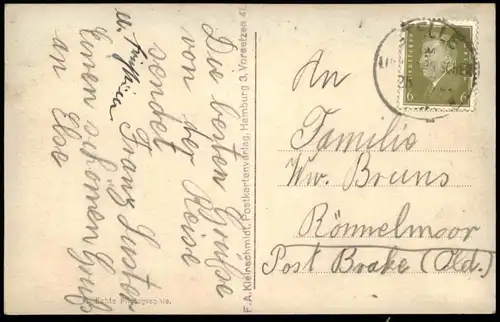 Die besten Grüße
von der Reise
sendet
Franz Luster
u.
Einen schönen Gruß
an Else
Echte Photographie.
F. A. Kleinschmidt, Postkartenverlag, Hamburg 3, Vorsetzen 41
An
Familie
Ww. Bruns
Rönnelmoor
Post Brake (Old.)
6 6